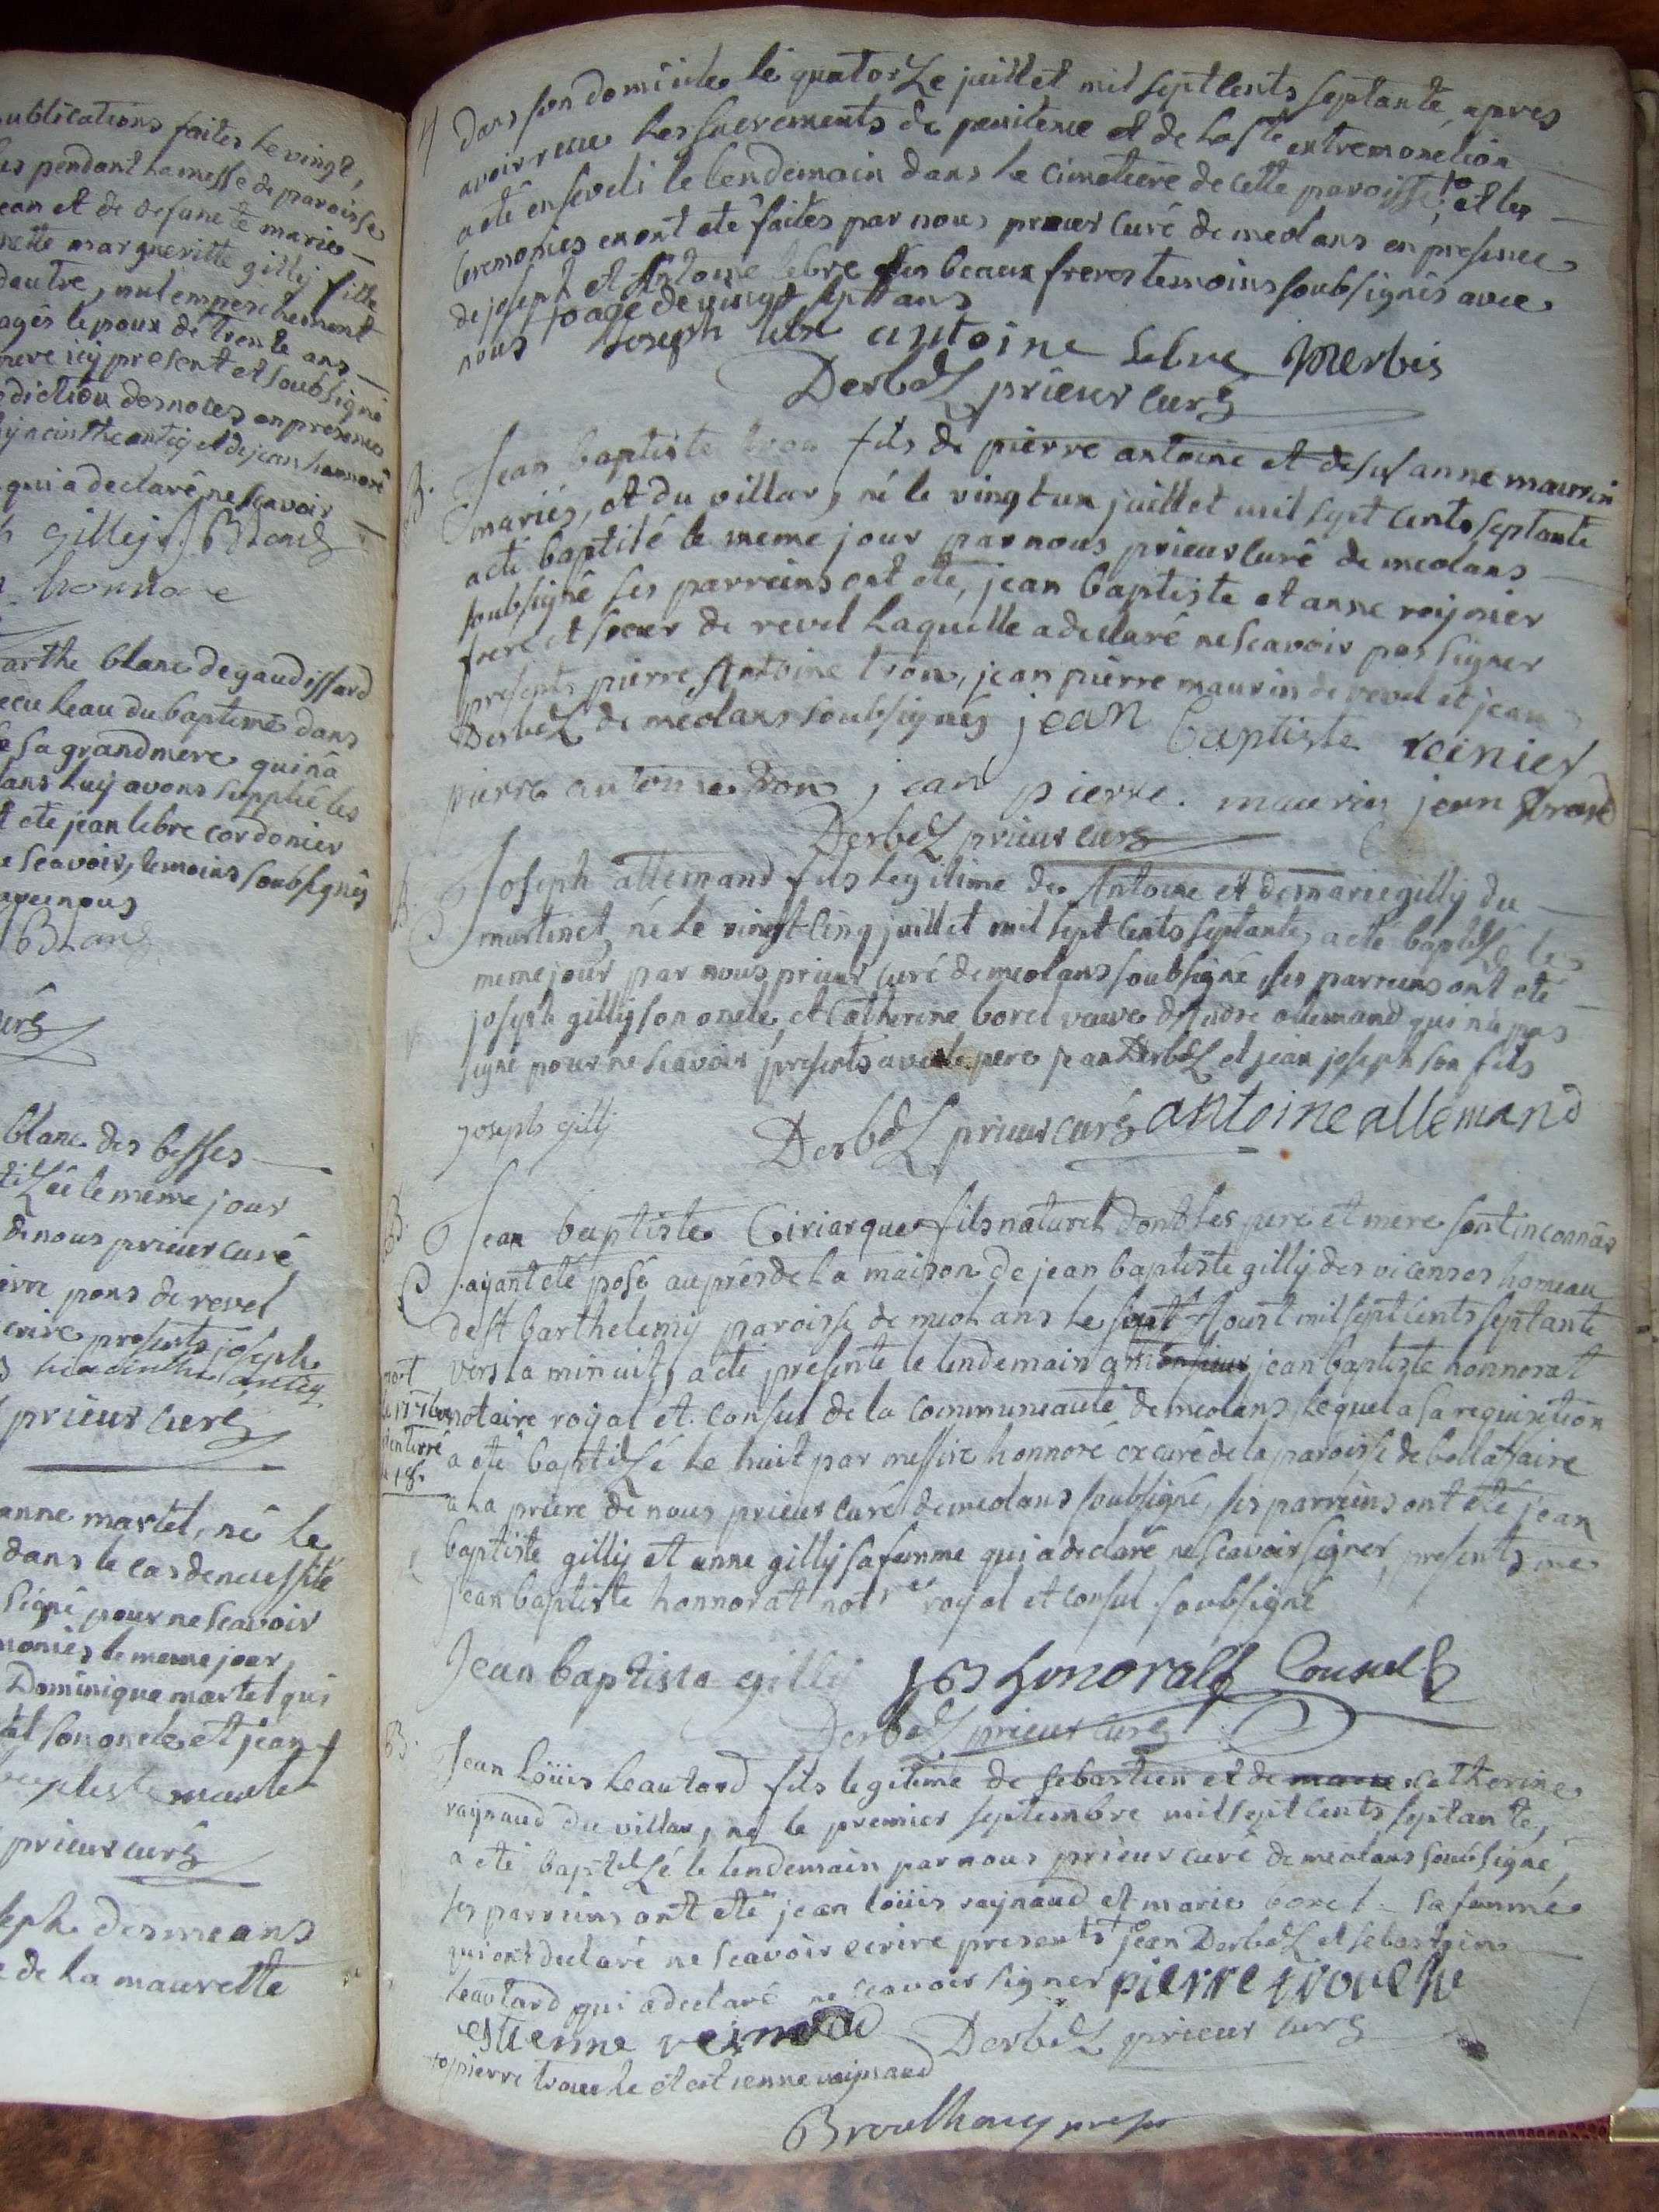 ublications faites le vingt,
es pendant la messe de paroisse
ean et de defuncte marie
nette margueritte gilly fille
dautre, nul empeschement
agés lepoux de trente ans
pere icy present et soubsigné
diction des noces en presence
hyacinthe antiq et de jean honnoré
qui a declaré ne scavoir
gilly J Blanc
honnore
arthe blanc de gaudissard
ecu leau du bapteme dans
sa grandmere qui na
lans luy avons suppleé les
t eté jean lebre cordonier
e scavoir, temoins soubsignés
avec nous
Blanc
blanc des besses
tiZéé le meme jour
de nous prieur curé
erre pons de revel
crire presents joseph
hiacinthe antiq
prieur curé
anne martel, né le
dans le cas de necessité
signé pour ne scavoir
monies le meme jour,
Dominique martel qui
tel son oncle, et jean
baptiste martel
prieur curé
seph desmeans
e de la maurette
dans son domicile le quatorZe juillet mil sept cents septante, apres
avoir receu les sacrements de penitence et de la ste extremonction
a eté enseveli le lendemain dans le cimetiere de cette paroisse, to et les
ceremonies en ont eté faites par nous prieur curé de meolans en presence
de joseph et Antoine lebre ses beaux freres temoins soubsignés avec
nous to agé de vingt sept ans
Joseph lebre antoine lebre Merbis
DerbeZ prieur curé
B.
Jean baptiste tron fils de pierre antoine et de susanne maurin
mariés, et du villar, né le vingt un juillet mil sept cents septante
a eté baptisé le meme jour par nous prieur curé de meolans
soubsigné ses parreins ont eté, jean baptiste et anne roynier
frere et soeur de revel laquelle a declaré ne scavoir pas signer
presents pierre Antoine tron, jean pierre maurin de revel et jean
DerbeZ de meolans soubsignés jean baptiste reinier
pierre antoine tron jean pierre. maurin jean
DerbeZ prieur curé
B.
Joseph allemand fils legitime de Antoine et de marie gilly du
martinet, né le vingt cinq juillet mil sept cents septante, a eté baptiZé le
meme jour par nous prieur curé de meolans soubsigné ses parreins ont eté
joseph gilly son oncle, et Catherine borel veuve dAndre allemand qui n'a pas
signé pour ne scavoir, presents avec le pere jean DerbeZ et jean joseph son fils
joseph gilly DerbeZ prieur curé antoine allemand
B.
Jean baptiste Ciriarque fils naturel dont les pere et mere sont inconnus
ayant eté posé auprès de la maison de jean baptiste gilly des vicenses hameau
de st barthelemy paroisse de meolans le sept Aoust mil sept cents septante
vers la minuit, a eté presenté le lendemain a jean baptiste honnorat
notaire royal et consul de la communeauté de meolans, lequel a sa requisition
a eté baptiZé le huit par messire honnoré ex curé de la paroisse de bellaffaire
a la priere de nous prieur curé de meolans soubsigné, ses parreins ont eté jean
baptiste gilly et anne gilly sa femme qui a declaré ne scavoir signer, presents me
jean baptiste honnorat notre royal et consul soubsigné
mort
le 17
enterré
le 18.
Jean baptiste gilly JB honoratt Consul
DerbeZ prieur curé
B.
Jean Loüis Leautard fils legitime de sebastien et de marie catherine
raynaud du villar, né le premier septembre mil sept cents septante,
a eté baptiZé le lendemain par nous prieur curé de meolans soubsigné,
ses parreins ont eté jean loüis raynaud et marie borel sa femme
qui ont declaré ne scavoir ecrire presents to jean DerbeZ et sebastien
leautard qui a declaré ne scavoir signer pierre trouche
estienne reinaud DerbeZ prieur curé
to pierre trouche et estienne raynaud